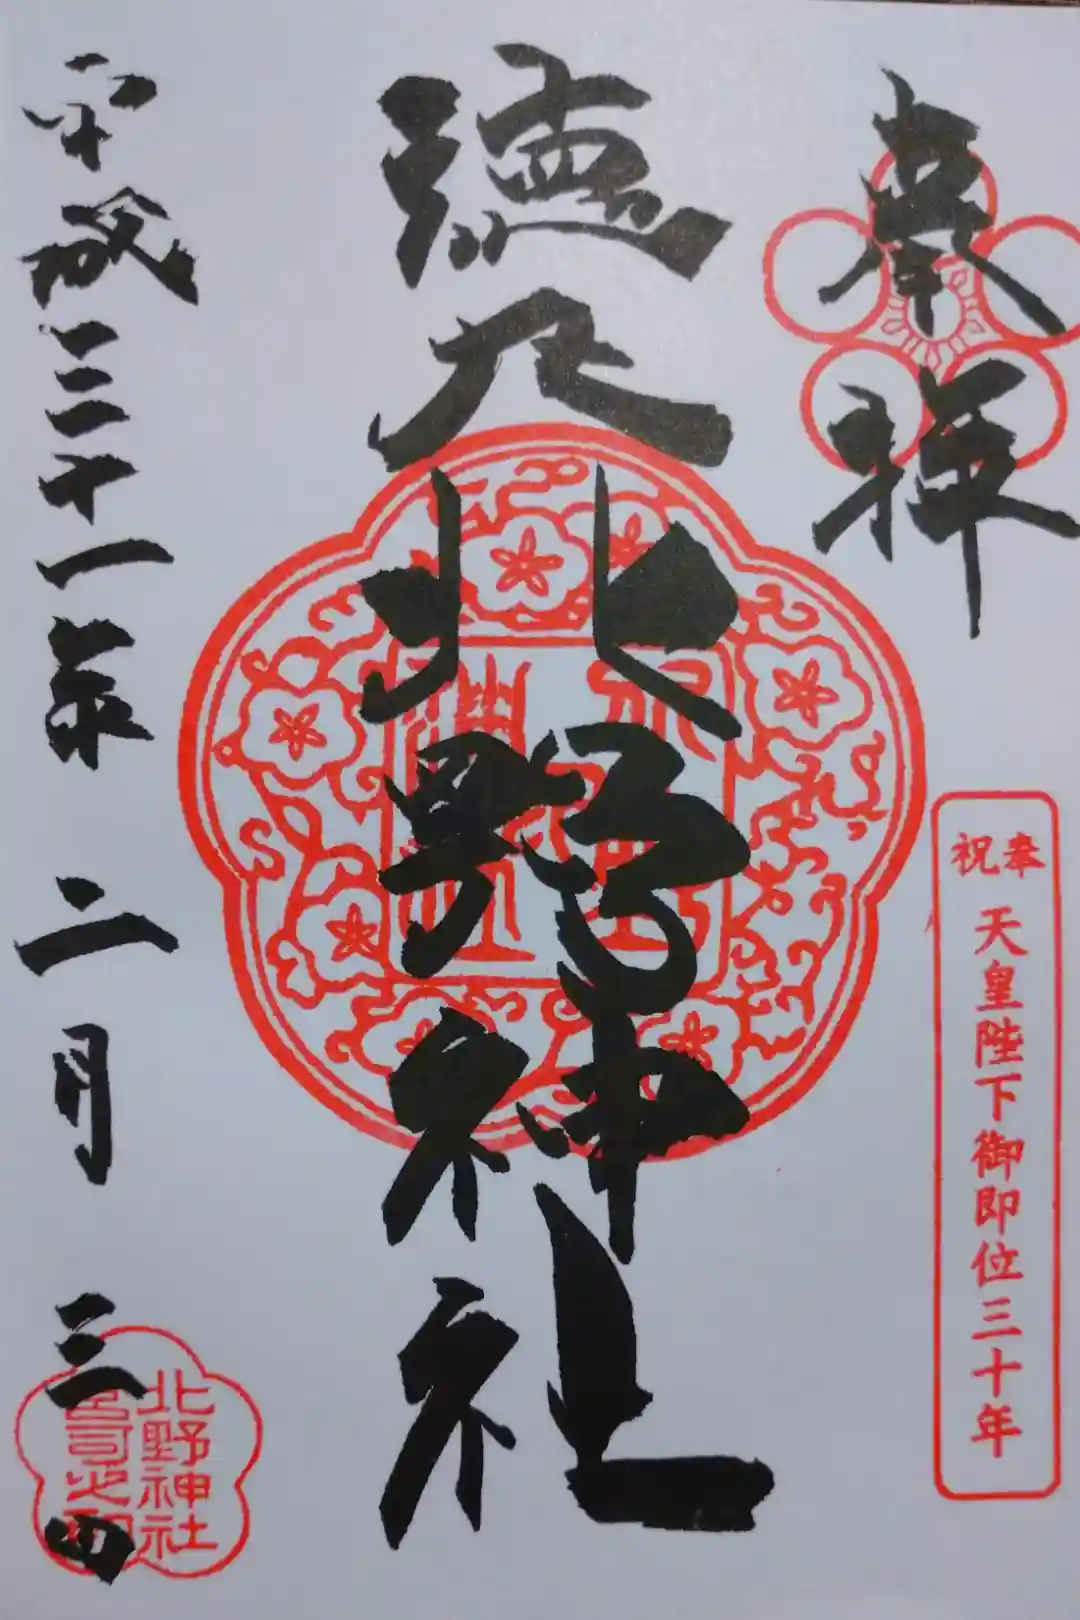 奉拝
奉祝
天皇陛下御即位三十年
徳丸北野神社
平成三十一年 二月 三日
北野神社
宮司之印